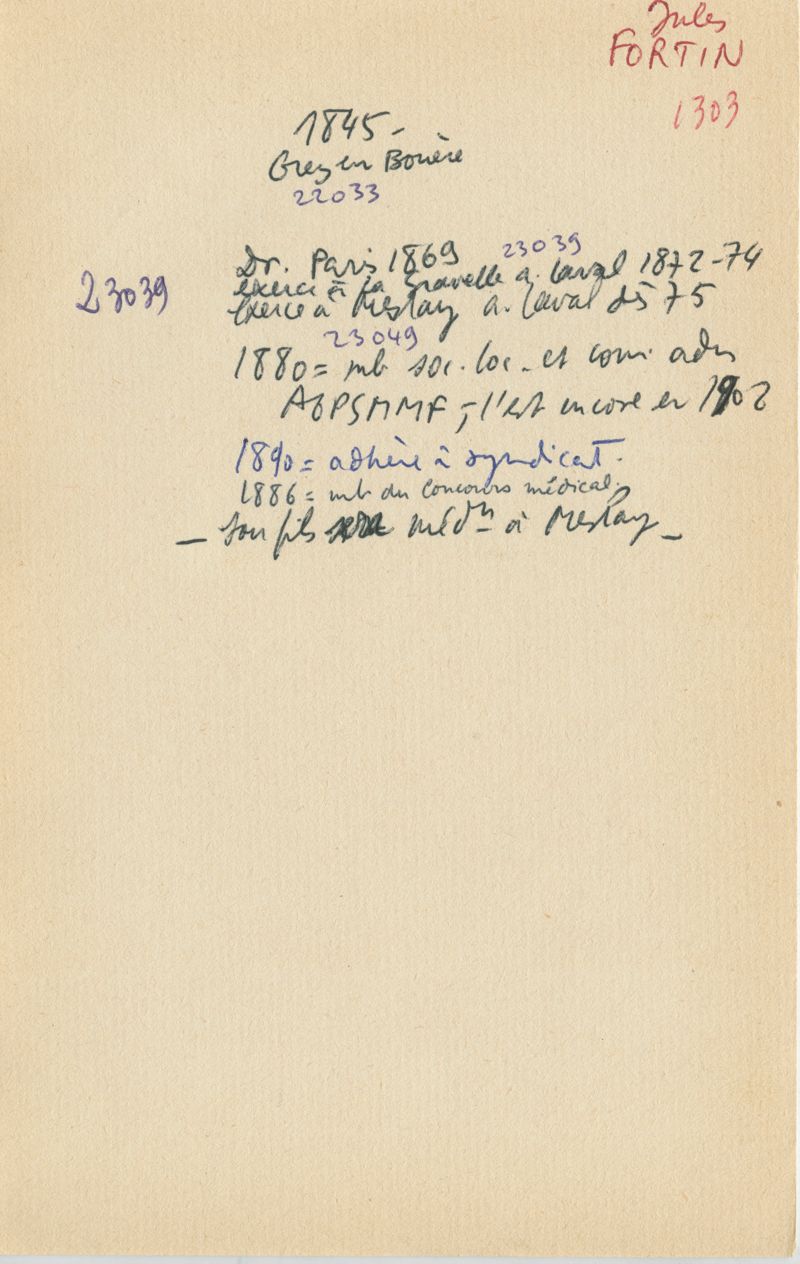 Jules
FORTIN
1303
1845-
Grez en Bouère
22033
23039
Dr. Paris 1869
23039
exerce à la Gravelle a. Laval 1872-74
exerce à Meslay a. Laval dès 75
23049
1880= mb soc. loc. et com. adm
AGPSMMF, - l'est encore en 1902
1890= adhère à syndicat.
1886= mb du Concours médical.
- son fils méd^n à Meslay -